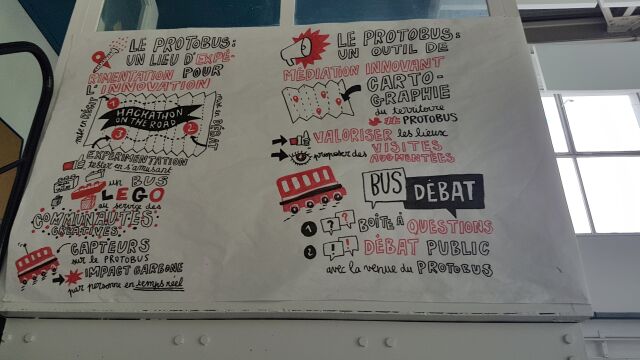 LE PROTOBUS :
UN LIEU D'EXPÉ-
RIMENTATION POUR
L'INNOVATION
mise en DÉBAT
1
HACKATHON
ON THE ROAD
3
2
mise en DÉBAT
EXPÉRIMENTATION
tester en s'amusant
un BUS
LEGO
au service des
COMMUNAUTÉS
CRÉATIVES
CAPTEURS
sur le PROTOBUS
IMPACT CARBONE
par personne en temps réel
LE PROTOBUS :
UN OUTIL DE
MÉDIATION INNOVANT
CARTO-
GRAPHIE
du territoire
# PROTOBUS
VALORISER les lieux
proposer des VISITES
AUGMENTÉES
BUS
DÉBAT
1 ? ? BOÎTE À QUESTIONS
2 ! ! DÉBAT PUBLIC
avec la venue du PROTOBUS